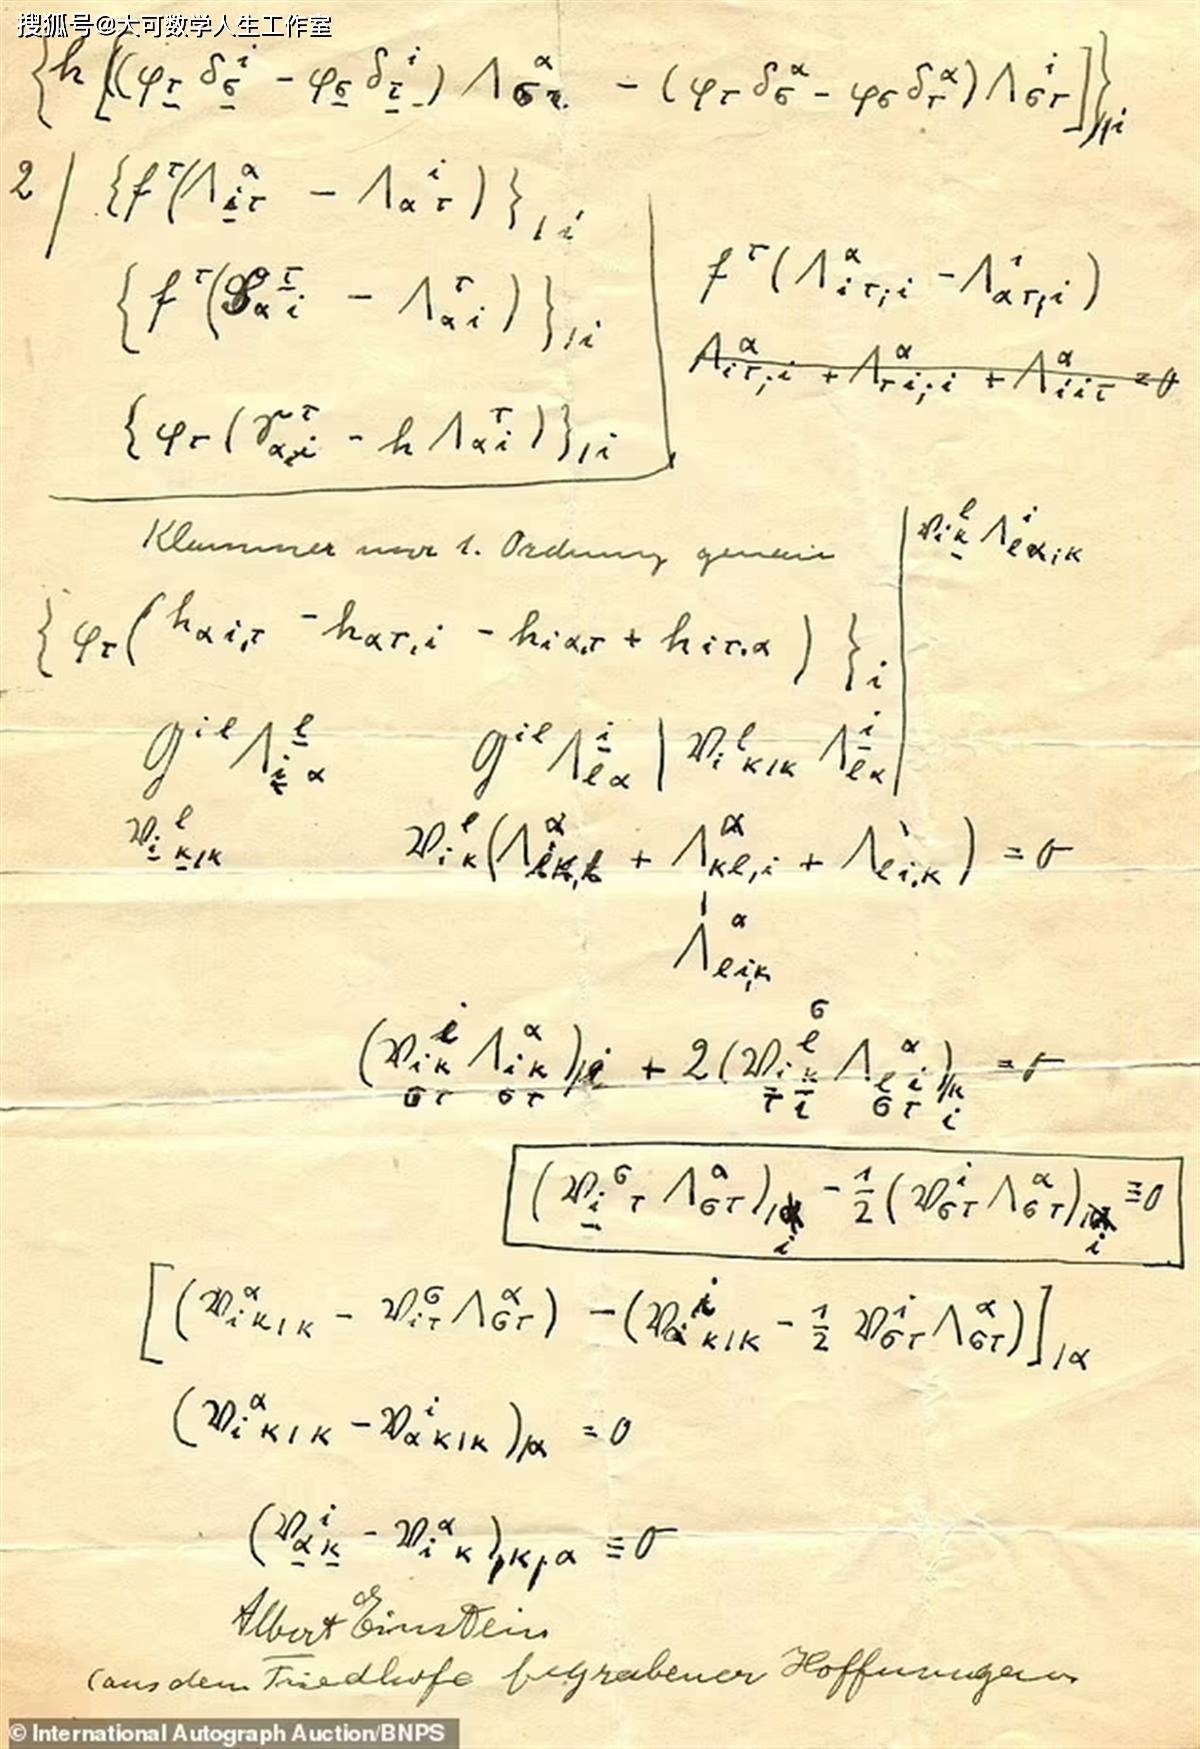 搜狐号@大可数学人生工作室
{h[(φ_τ δ_σ^i − φ_σ δ_τ^i) Λ_στ^α − (φ_τ δ_σ^α − φ_σ δ_τ^α) Λ_στ^i]}_//i
2/ {f^τ(Λ_iτ^α − Λ_ατ^i)}_/i
{f^τ( − Λ_αi^τ)}_/i
f^τ(Λ_iτ,i^α − Λ_ατ,i^i)
Λ_iτ;i^α + Λ_τi;i^α + Λ_iiτ^α = 0
{φ_τ( − h Λ_αi^τ)}_/i
Klammer nur 1. Ordnung genau
V_ik^l Λ_lα,k^i
{φ_τ(h_αi,τ − h_ατ,i − h_iα,τ + h_iτ,α)}_i
g^il Λ_iα^l g^il Λ_lα^i | V_i^l_k/k Λ_lα^i
V_i^l_k/k V_ik^l(Λ^α + Λ_kl,i^α + Λ_li,k) = 0
Λ_li,k^α
(V_ik^l Λ_ik^α)_/i + 2(V_ik^l Λ_li^α)_/k = 0
στ στ σ τ i στ i
(V_i^σ_τ Λ_στ^α)_/i − 1/2 (V_στ^i Λ_στ^α)_/i ≡ 0
[(V_i^α_k/k − V_iτ^σ Λ_στ^α) − (V_α^i_k/k − 1/2 V_στ^i Λ_στ^α)]_/α
(V_i^α_k/k − V_α^i_k/k)_/α = 0
(V_αk^i − V_i^α_k)_/k/α ≡ 0
Albert Einstein
(aus dem Friedhofe begrabener Hoffnungen
© International Autograph Auction/BNPS